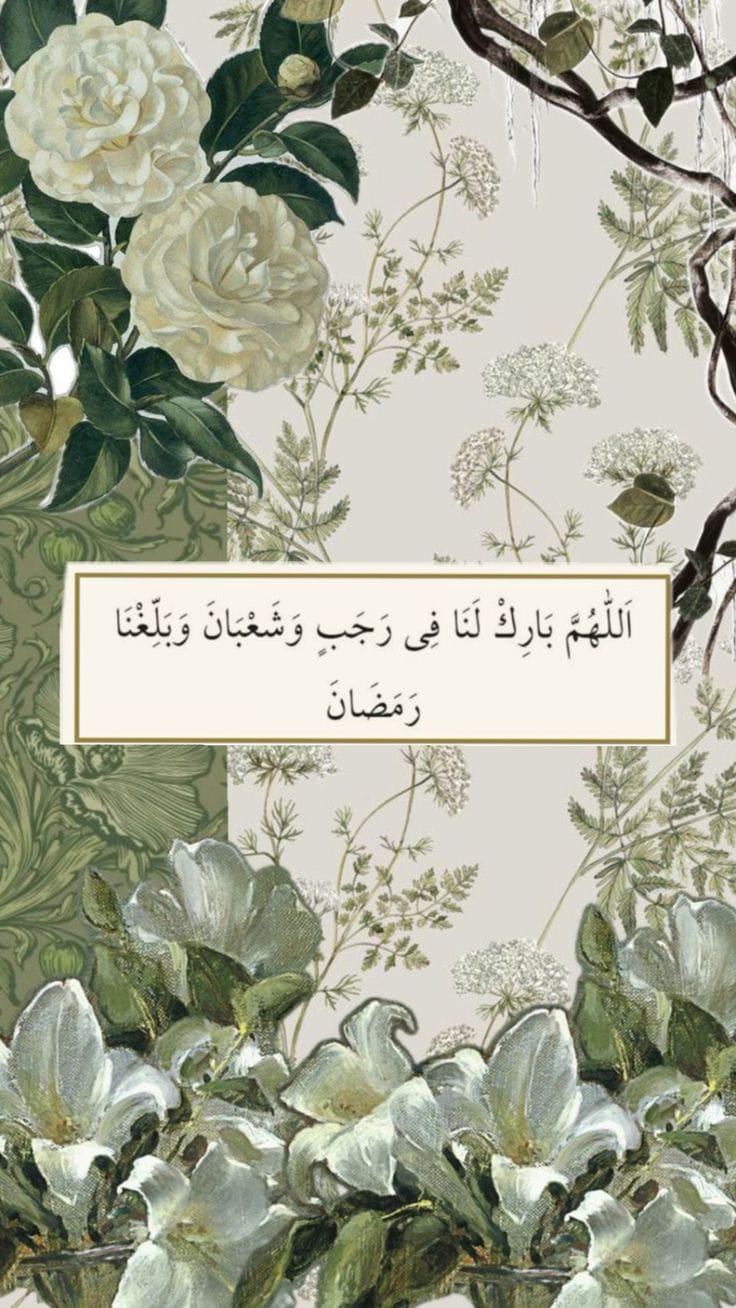 اَللّٰهُمَّ بَارِكْ لَنَا فِى رَجَبٍ وَشَعْبَانَ وَبَلِّغْنَا
رَمَضَانَ